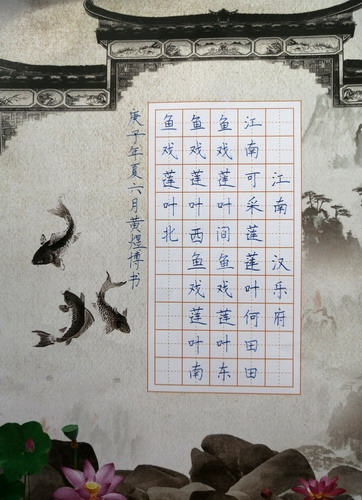 江南 汉乐府
江南可采莲莲叶何田田
鱼戏莲叶间鱼戏莲叶东
鱼戏莲叶西鱼戏莲叶南
鱼戏莲叶北
庚子年夏六月黄煜博书